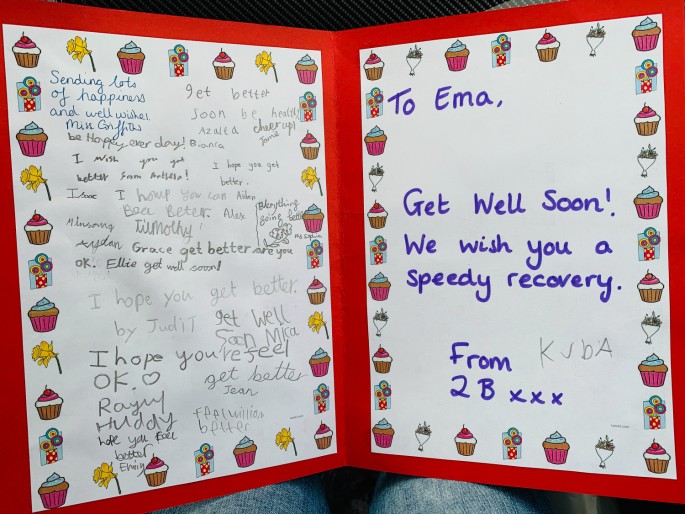 Sending lots
of happiness
and well wishes.
Miss Griffiths
get better
Soon be healthy
Azalea
cheer up!
Jamie
be Happy ever day! Bianca
I wish you get
better from
I hope you get
better.
Isaac
I you can Aiden
Beel Better Alex
Everything
going better
Minsung
TiMothy!
Grace get better are you
OK. Ellie get well soon!
I hope you get better.
by JudiT
get Well
Soon Mika
I hope you're feel
OK.♡
get better
Jean
Huddy
feel william
better
hope you feel
better
Emily
To Ema,
Get Well Soon!
We wish you a
speedy recovery.
From
2B xxx
KubA